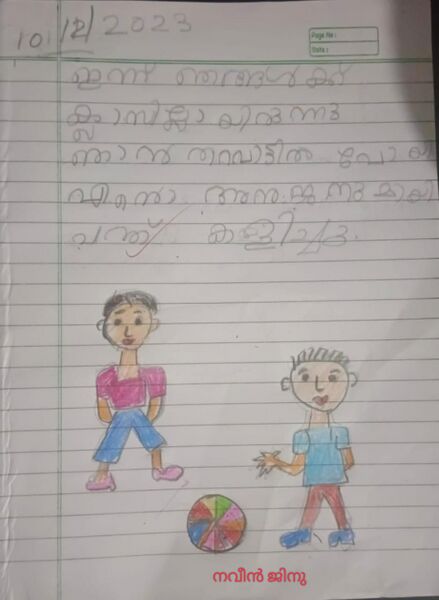 10/12/2023
Page No :
Date :
ഇന്ന് ഞങ്ങൾക്ക്
ക്ലാസില്ലായിരുന്നു
ഞാൻ തറവാട്ടിൽ പോയി
എന്റെ അനുജനുമായി
പന്ത് കളിച്ചു.
നവീൻ ജിനു